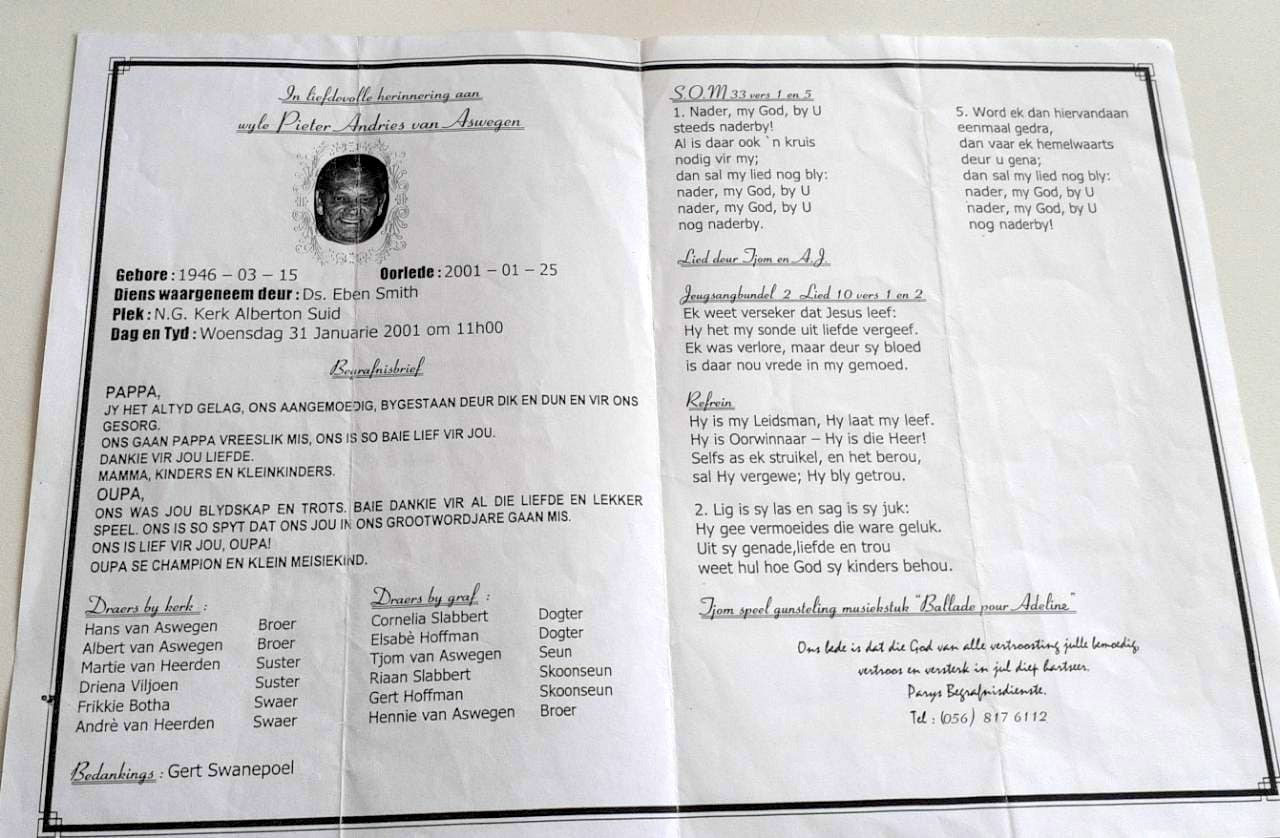 In liefdevolle herinnering aan
wyle Pieter Andries van Aswegen
Gebore : 1946 – 03 – 15 Oorlede : 2001 – 01 – 25
Diens waargeneem deur : Ds. Eben Smith
Plek : N.G. Kerk Alberton Suid
Dag en Tyd : Woensdag 31 Januarie 2001 om 11h00
Begrafnisbrief
PAPPA,
JY HET ALTYD GELAG, ONS AANGEMOEDIG, BYGESTAAN DEUR DIK EN DUN EN VIR ONS
GESORG.
ONS GAAN PAPPA VREESLIK MIS, ONS IS SO BAIE LIEF VIR JOU.
DANKIE VIR JOU LIEFDE.
MAMMA, KINDERS EN KLEINKINDERS.
OUPA,
ONS WAS JOU BLYDSKAP EN TROTS. BAIE DANKIE VIR AL DIE LIEFDE EN LEKKER
SPEEL. ONS IS SO SPYT DAT ONS JOU IN ONS GROOTWORDJARE GAAN MIS.
ONS IS LIEF VIR JOU, OUPA!
OUPA SE CHAMPION EN KLEIN MEISIEKIND.
Draers by kerk :
Hans van Aswegen Broer
Albert van Aswegen Broer
Martie van Heerden Suster
Driena Viljoen Suster
Frikkie Botha Swaer
Andrè van Heerden Swaer
Draers by graf :
Cornelia Slabbert Dogter
Elsabè Hoffman Dogter
Tjom van Aswegen Seun
Riaan Slabbert Skoonseun
Gert Hoffman Skoonseun
Hennie van Aswegen Broer
Bedankings : Gert Swanepoel
S.O.M 33 vers 1 en 5
1. Nader, my God, by U
steeds naderby!
Al is daar ook `n kruis
nodig vir my;
dan sal my lied nog bly:
nader, my God, by U
nader, my God, by U
nog naderby.
5. Word ek dan hiervandaan
eenmaal gedra,
dan vaar ek hemelwaarts
deur u gena;
dan sal my lied nog bly:
nader, my God, by U
nader, my God, by U
nog naderby!
Lied deur Tjom en A.J.
Jeugsangbundel 2 Lied 10 vers 1 en 2
Ek weet verseker dat Jesus leef:
Hy het my sonde uit liefde vergeef.
Ek was verlore, maar deur sy bloed
is daar nou vrede in my gemoed.
Refrein
Hy is my Leidsman, Hy laat my leef.
Hy is Oorwinnaar – Hy is die Heer!
Selfs as ek struikel, en het berou,
sal Hy vergewe; Hy bly getrou.
2. Lig is sy las en sag is sy juk:
Hy gee vermoeides die ware geluk.
Uit sy genade,liefde en trou
weet hul hoe God sy kinders behou.
Tjom speel gunsteling musiekstuk "Ballade pour Adeline"
Ons bede is dat die God van alle vertroosting julle bemoedig,
vertroos en versterk in jul diep hartseer.
Parys Begrafnisdienste.
Tel : (056) 817 6112